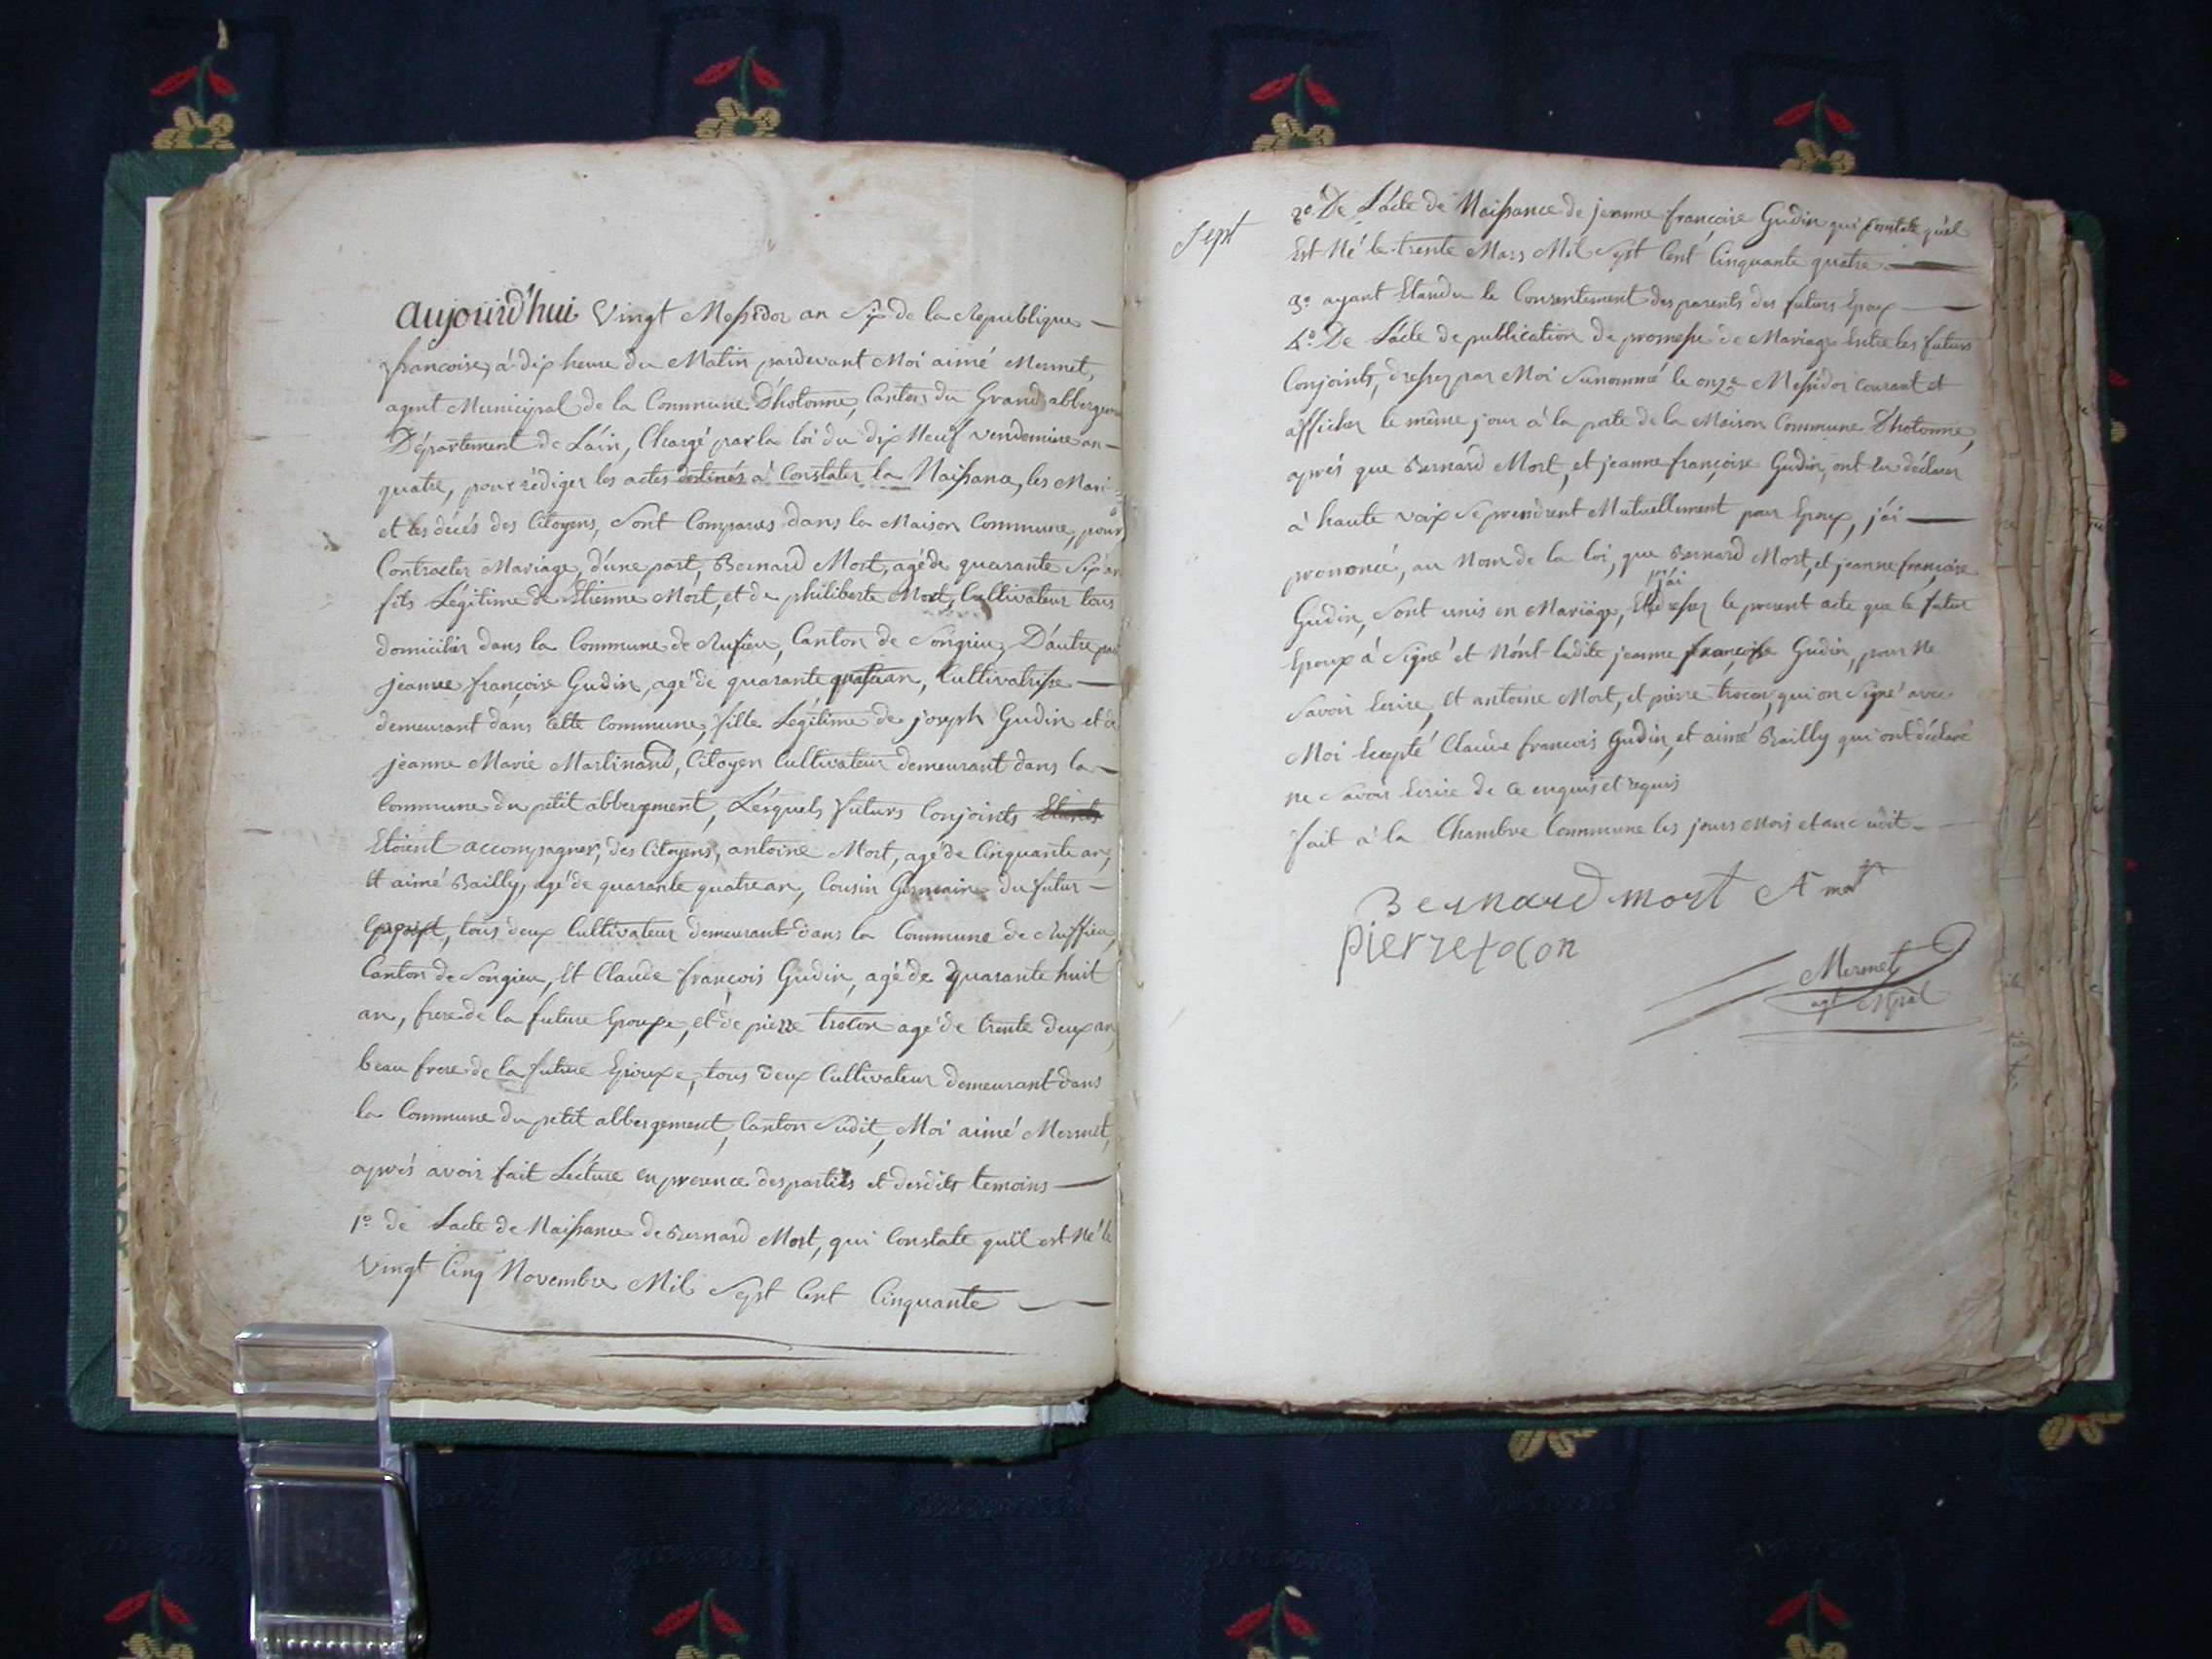 Aujourd'hui Vingt Messidor an Six de la Republique
francoise, à dix heure du Matin pardevant Moi aimé Mermet,
agent Municipal de la Commune D'hotonne, Canton du Grand abbergem
Département de L'ain, Chargé par la loi du dix Neuf vendemire an
quatre, pour rédiger les actes destinés à Constater la Naissance, les Mari
et les décés des Citoyens, Sont Comparus dans la Maison Commune, pour
Contracter Mariage, d'une part, Bernard Mort, agé de quarante Six an
fils Légitime de Etienne Mort, et de philiberte Mort, Cultivateur tous
domicilier dans la Commune de Rufieu, Canton de Songieu, D'autre part
jeanne françoise Gudin, agé de quarante quatre an, Cultivatrisse
demeurant dans Cette Commune, fille Légitime de joseph Gudin et de
jeanne Marie Martinand, Citoyen Cultivateur demeurant dans la
Commune du petit abbergement, Lesquels futurs Conjoints
Etoient accompagner, des Citoyens, antoine Mort, agé de Cinquante an,
et aimé Bailly, agé de quarante quatre an, Cousin Germain du futur
tous deux Cultivateur demeurant dans la Commune de Ruffieu,
Canton de Songieu, Et Claude françois Gudin, agé de quarante huit
an, frere de la future Epouxe, et de pierre trocon agé de trente deux an,
beau frere de la future Epouxe, tous deux Cultivateur demeurant dans
la Commune du petit abbergement, Canton Sudit, Moi aimé Mermet,
après avoir fait Lecture en presence des parties et desdits temoins
1.º de Lacte de Naissance de Bernard Mort, qui Constate qu'il est Né le
Vingt Cinq Novembre Mil Sept Cent Cinquante
Sept
2º De L'acte de Naissance de jeanne françoise Gudin qui Constate qu'el
Est Né le trente Mars Mil Sept Cent Cinquante quatre
3º ayant Etandu le Consentement des parents des futurs Epoux
4º De L'acte de publication de promesse de Mariage Entre les futurs
Conjoints, dressez par Moi Sunommé le onze Messidor courant et
afficher le même jour à la porte de la Maison Commune D'hotonne,
après que Bernard Mort, et jeanne françoise Gudin, ont Eu déclarer
à haute voix Se prendrent Mutuellement pour Epoux, j'ai
prononcé, au Nom de la loi, que Bernard Mort, et jeanne françoise
j'ai
Gudin, Sont unis en Mariage, Et dressez le present acte que le futur
Epoux à Signé et Non't ladite jeanne françoise Gudin, pour Ne
Savoir Ecrire, Et antoine Mort, et pierre trocon, qui on Signé avec
Moi Excepté Claude francois Gudin, et aimé Bailly qui ont déclaré
ne Savoir Ecrire de ce enquis et requis
fait à la Chambre Commune les jours Mois et an Sudit
Bernard mort A mort
pierre trocon
Mermet
agt Mpal